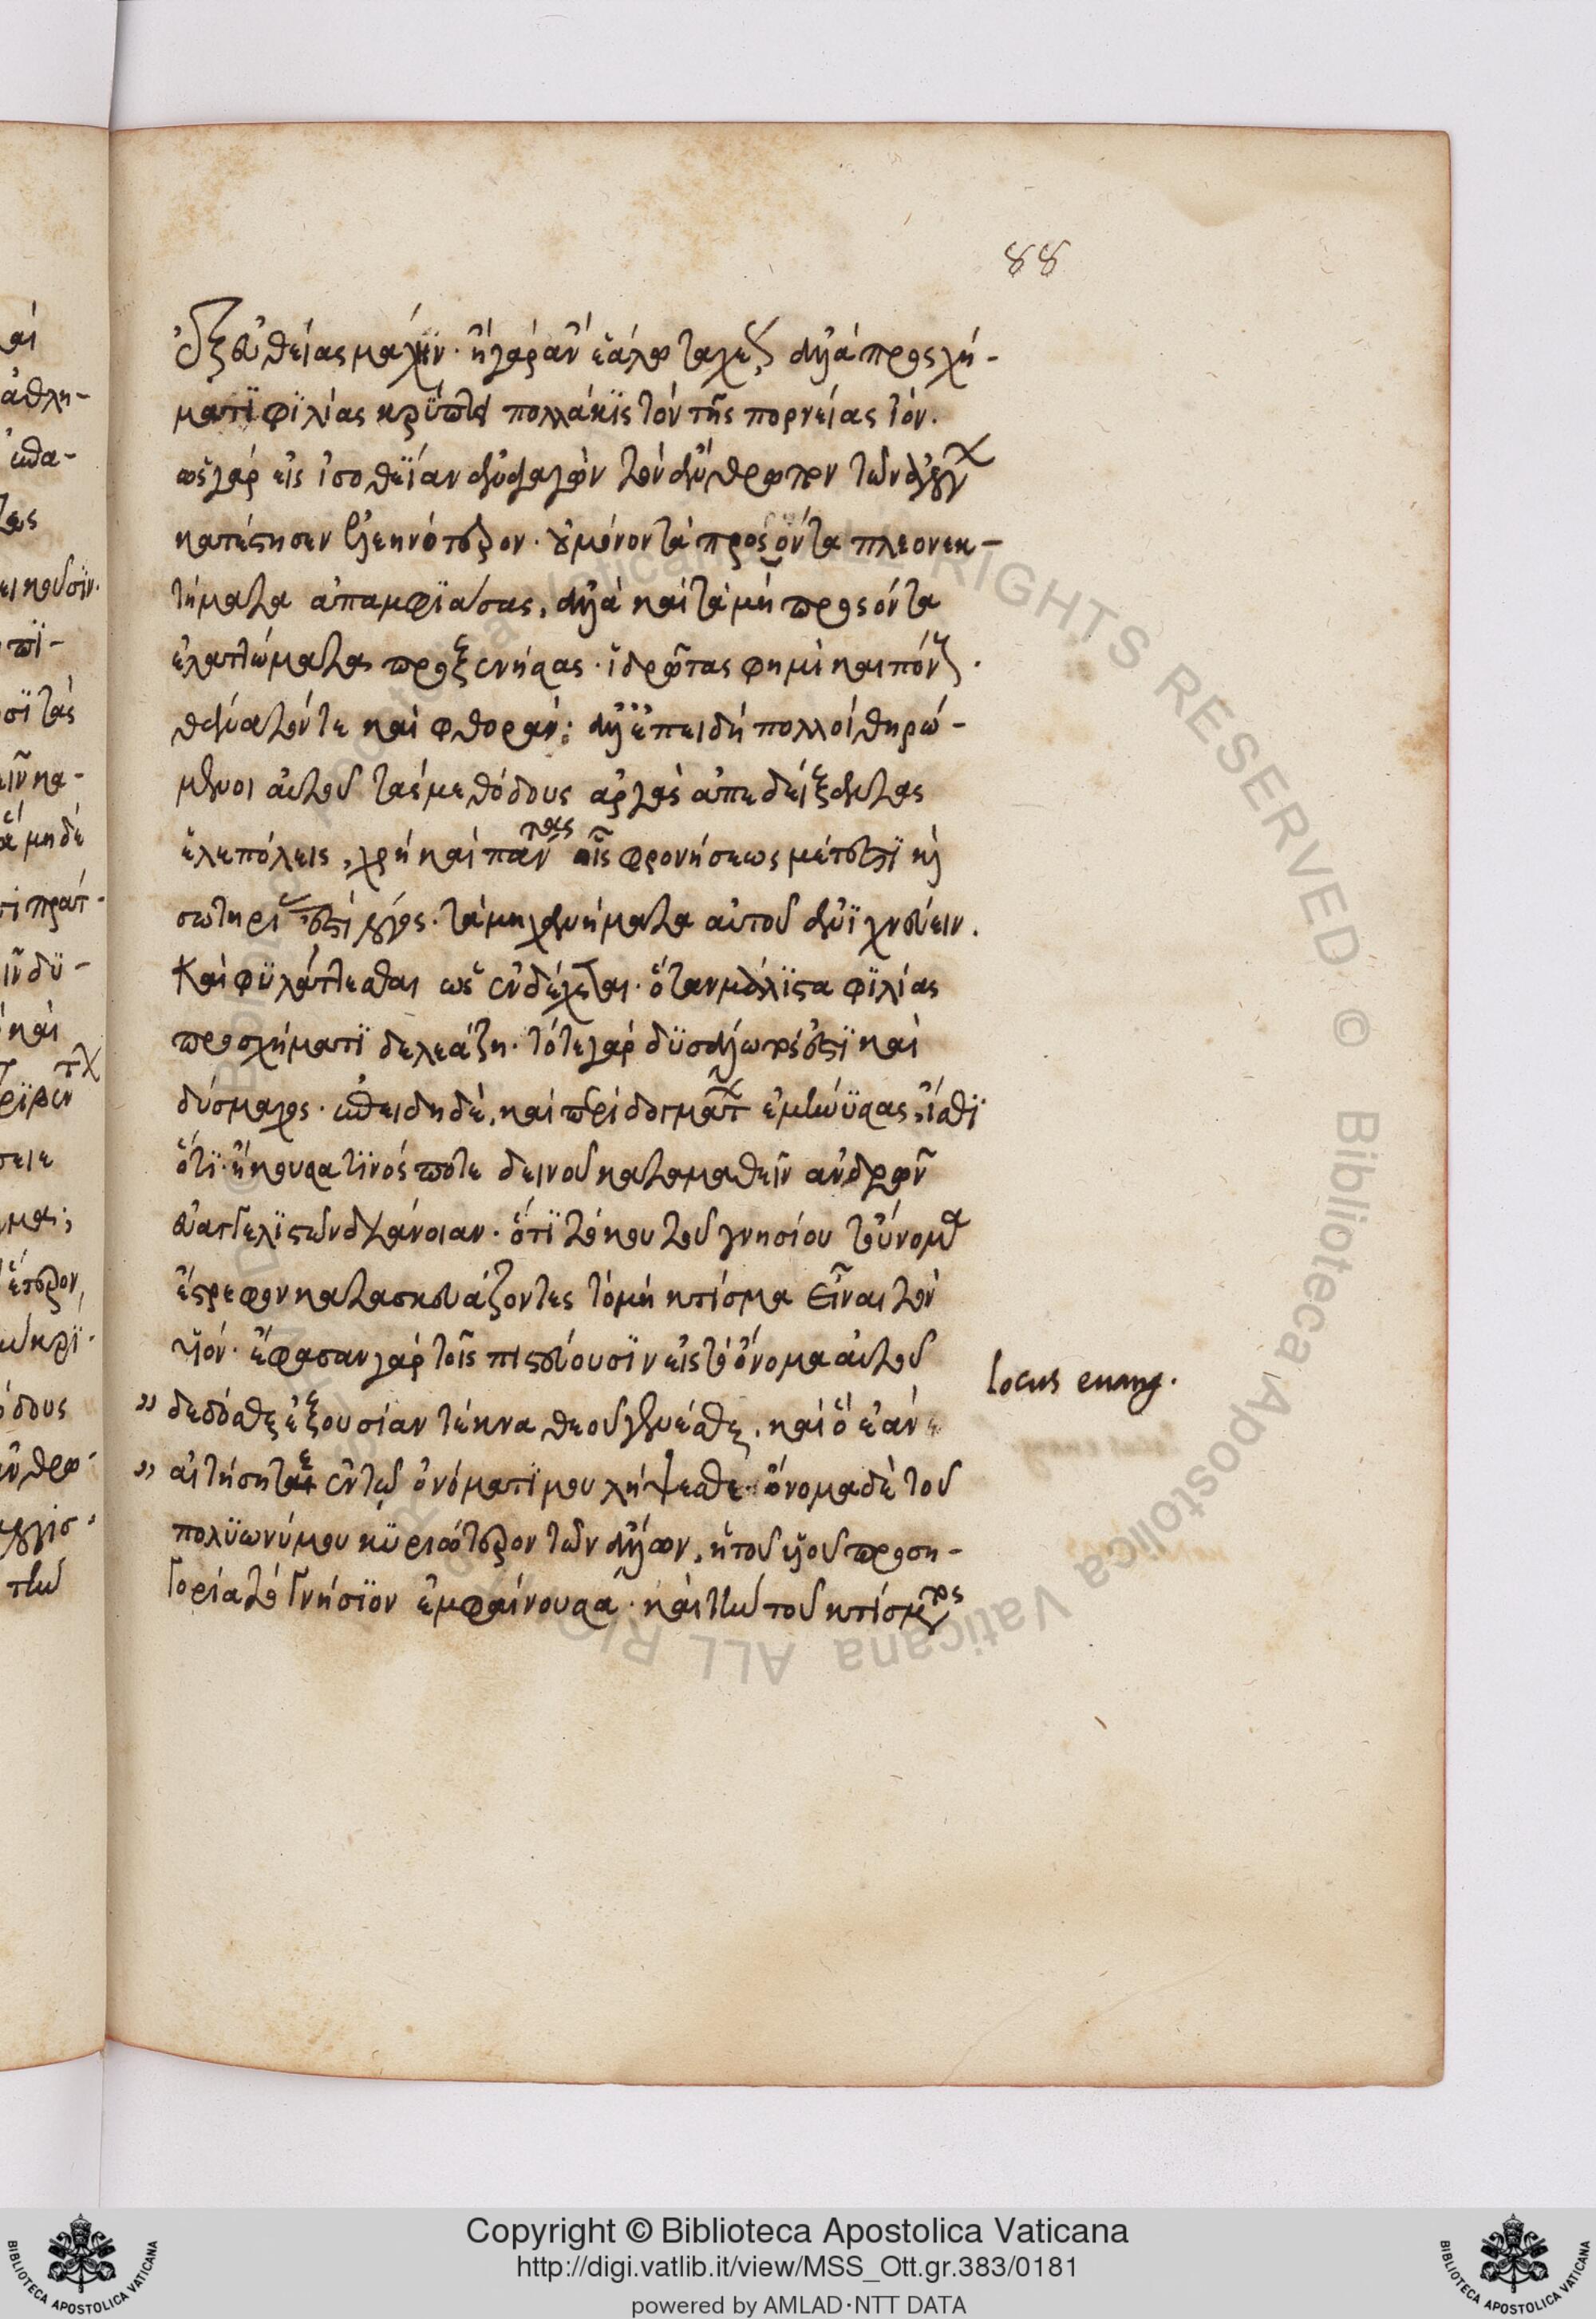 88
ἐξευθείας μάχην· ἢ γὰρ ἂν ἑάλω ταχέως ἀλλὰ προσχή-
ματι φιλίας κρύπτει πολλάκις τὸν τῆς πορνείας ἰόν.
ὡς γὰρ εἰς ἰσοθεΐαν ἀναγαγὼν τὸν ἄνθρωπον τῶν ἀλόγων
κατέστησεν ἐλεεινότερον· οὐ μόνον τὰ προσόντα πλεονεκ-
τήματα ἀπαμφιάσας, ἀλλὰ καὶ τὰ μὴ προσόντα
ἐλαττώματα προξενήσας· ἱδρῶτας φημὶ καὶ πόνους·
θάνατόν τε καὶ φθοράν· ἀλλ' ἐπειδὴ πολλοὶ θηρώ-
μενοι αὐτοῦ τὰς μεθόδους ἀργὰς ἀπεδείξαντο τὰς
ἑλεπόλεις, χρὴ καὶ πάντας οἷς φρονήσεως μέτεστι καὶ
σωτηρίας ἐστὶ λόγος· τὰ μηχανήματα αὐτοῦ ἀνιχνεύειν.
Καὶ φυλάττεσθαι ὡς ἐνδέχεται· ὅταν μάλιστα φιλίας
προσχήματι δελεάζῃ· τότε γὰρ δυσάλωτός ἐστι καὶ
δύσμαχος· ἐπειδὴ δὲ, καὶ περὶ δογμάτων ἐμήνυσας, ἴσθι
ὅτι ἤκουσα τινός ποτε δεινοῦ καταμαθεῖν ἀνδρῶν
εὐαγγελιστῶν διάνοιαν· ὅτι τὸ κου τοῦ γνησίου τοὔνομα
ἔστρεφον κατασκευάζοντες τὸ μὴ κτίσμα εἶναι τὸν
υἱόν· ἔφασαν γὰρ τοῖς πιστεύουσιν εἰς τὸ ὄνομα αὐτοῦ
» δεδόσθαι ἐξουσίαν τέκνα θεοῦ γενέσθαι, καὶ ὃ ἐὰν
» αἰτήσητε ἐν τῷ ὀνόματί μου λήψεσθε· ὄνομα δὲ τοῦ
πολυωνύμου κυριώτερον τῶν ἄλλων, ἡ τοῦ υἱοῦ προση-
γορία τὸ γνήσιον ἐμφαίνουσα· καὶ τὴν τοῦ κτίσματος
locus euang.
Copyright © Biblioteca Apostolica Vaticana
http://digi.vatlib.it/view/MSS_Ott.gr.383/0181
powered by AMLAD·NTT DATA